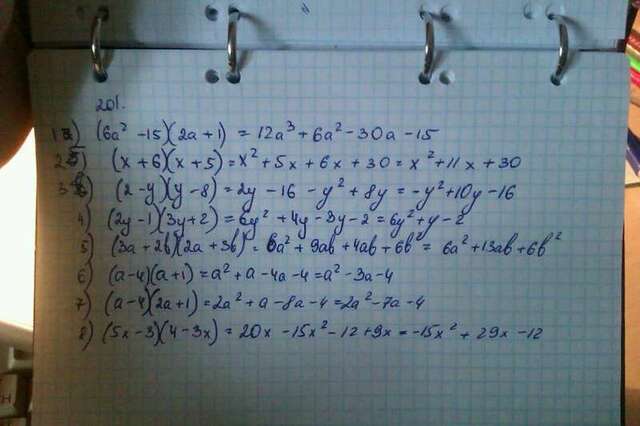 201.
1) (6a² - 15)(2a + 1) = 12a³ + 6a² - 30a - 15
2) (x + 6)(x + 5) = x² + 5x + 6x + 30 = x² + 11x + 30
3) (2 - y)(y - 8) = 2y - 16 - y² + 8y = -y² + 10y - 16
4) (2y - 1)(3y + 2) = 6y² + 4y - 3y - 2 = 6y² + y - 2
5) (3a + 2b)(2a + 3b) = 6a² + 9ab + 4ab + 6b² = 6a² + 13ab + 6b²
6) (a - 4)(a + 1) = a² + a - 4a - 4 = a² - 3a - 4
7) (a - 4)(2a + 1) = 2a² + a - 8a - 4 = 2a² - 7a - 4
8) (5x - 3)(4 - 3x) = 20x - 15x² - 12 + 9x = -15x² + 29x - 12